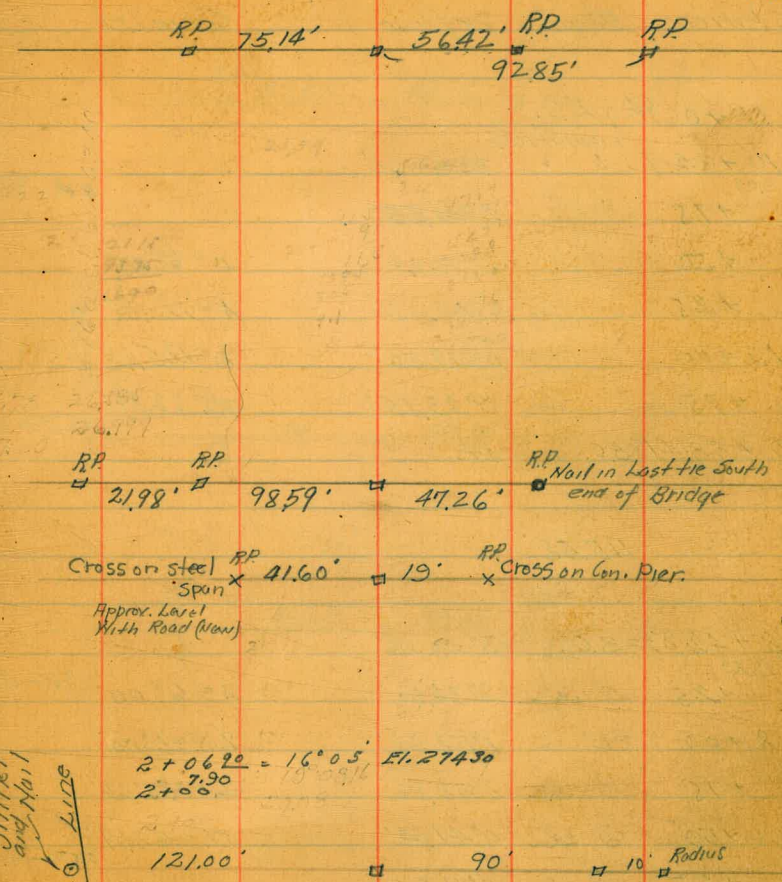 R.P. 75.14' 56.42' R.P. R.P.
92.85'
R.P. R.P. R.P. Nail in Last tie South
21.98' 98.59' 47.26' end of Bridge
Cross on steel R.P. 41.60' 19' R.P. Cross on Con. Pier.
Span
Approx. Level
With Road (New)
2+06.90 = 16°05' El. 274.30
7.90
2+00
and Nail
Line
121.00' 90' 10' Radius